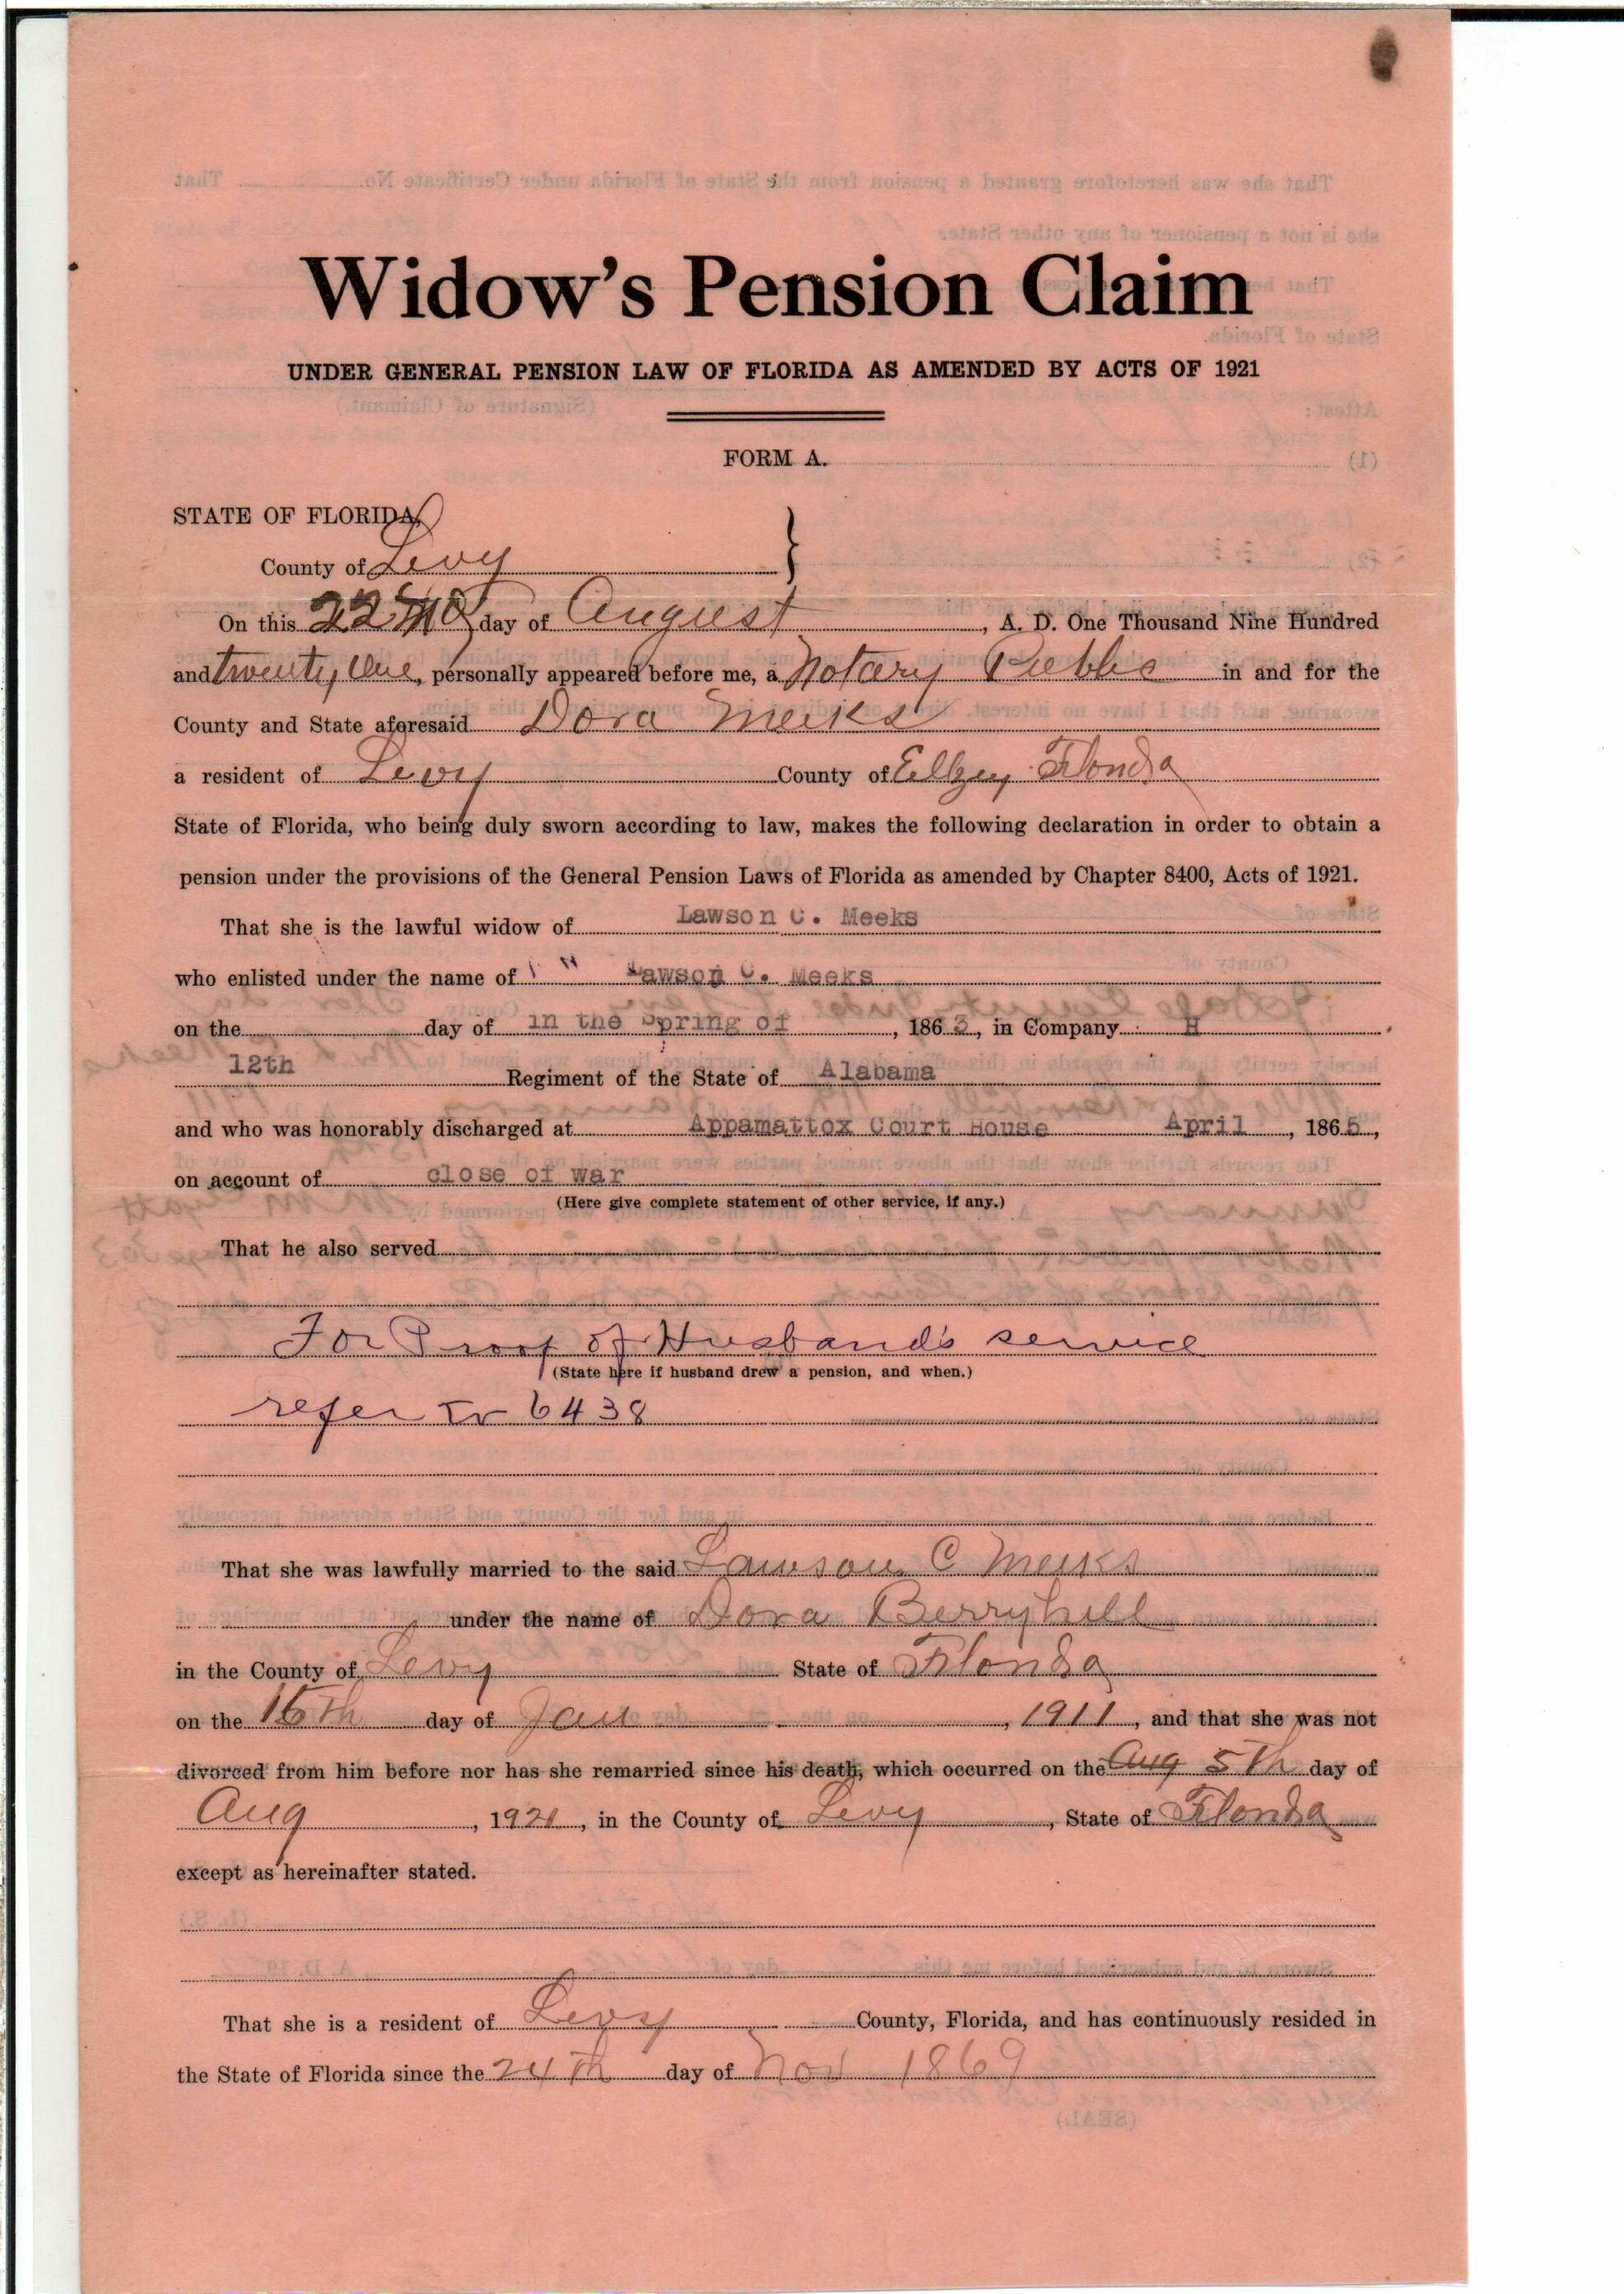 Widow's Pension Claim
UNDER GENERAL PENSION LAW OF FLORIDA AS AMENDED BY ACTS OF 1921
FORM A.
STATE OF FLORIDA,
County of Levy
On this 22nd day of August, A. D. One Thousand Nine Hundred
and twenty one, personally appeared before me, a Notary Public in and for the
County and State aforesaid Dora Meeks
a resident of Levy County of Ellzey Florida
State of Florida, who being duly sworn according to law, makes the following declaration in order to obtain a
pension under the provisions of the General Pension Laws of Florida as amended by Chapter 8400, Acts of 1921.
That she is the lawful widow of Lawson C. Meeks
who enlisted under the name of " Lawson C. Meeks
on the day of in the Spring of, 1863, in Company H
12th Regiment of the State of Alabama
and who was honorably discharged at Appamattox Court House April, 1865,
on account of close of war
(Here give complete statement of other service, if any.)
That he also served
For Proof of Husband's service
(State here if husband drew a pension, and when.)
refer to 6438
That she was lawfully married to the said Lawson C Meeks
under the name of Dora Berryhill
in the County of Levy State of Florida
on the 15th day of Jan, 1911, and that she was not
divorced from him before nor has she remarried since his death, which occurred on the Aug 5th day of
Aug, 1921, in the County of Levy, State of Florida
except as hereinafter stated.
That she is a resident of Levy County, Florida, and has continuously resided in
the State of Florida since the 24th day of Nov 1869